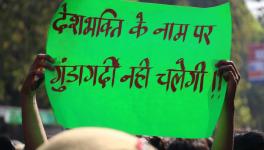 देशभक्ति के नाम पर
गुंडागर्दी नही चलेगी !!